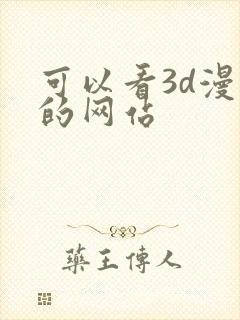 可以看3d漫
的网站
藥王傳人